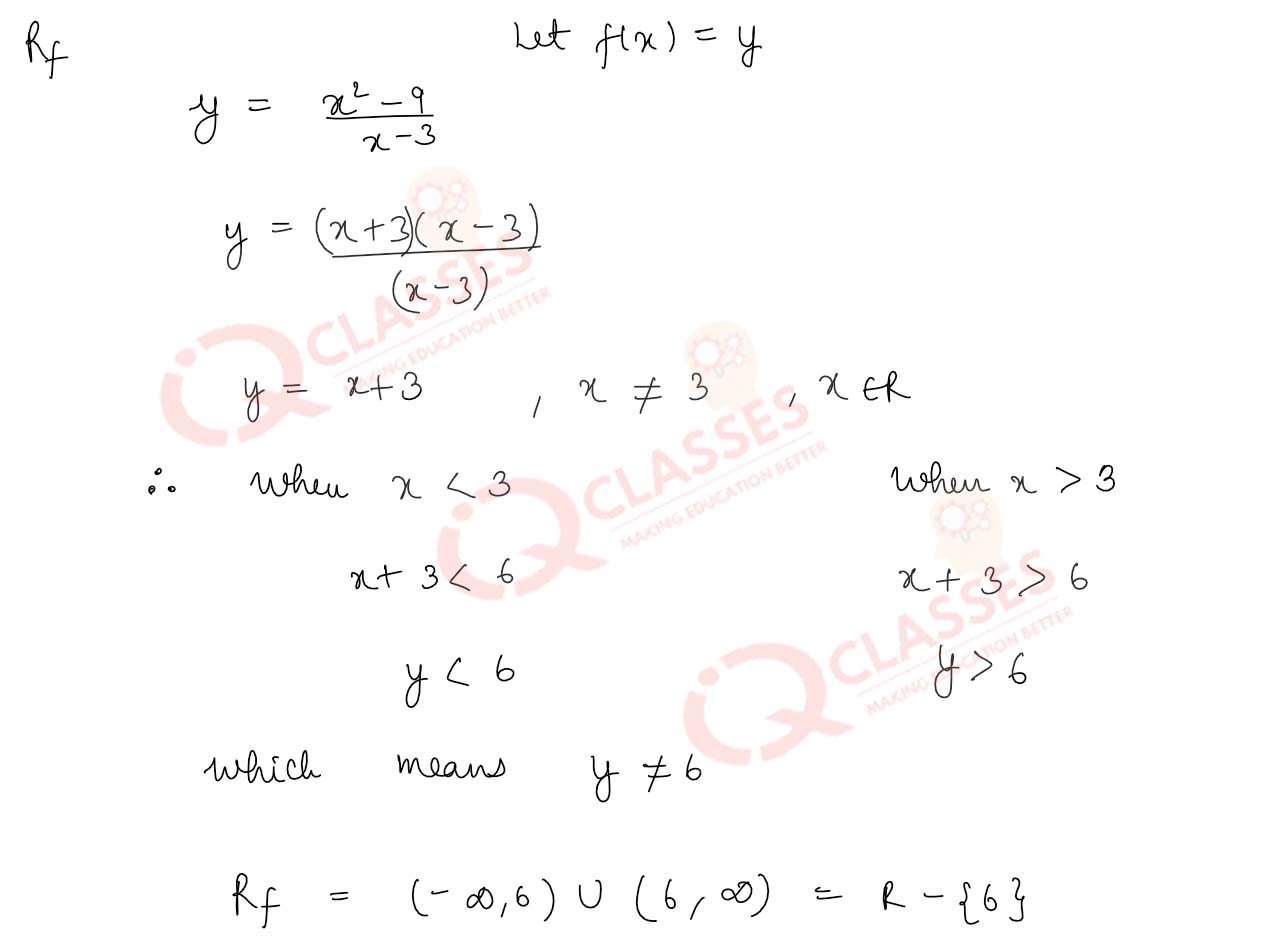 Rf Let f(x) = y
y = x² - 9 / x - 3
y = (x+3)(x-3) / (x-3)
y = x+3 , x ≠ 3 , x ∈ R
∴ When x < 3 When x > 3
x + 3 < 6 x + 3 > 6
y < 6 y > 6
which means y ≠ 6
Rf = (-∞,6) ∪ (6,∞) = R - {6}
IQ CLASSES
MAKING EDUCATION BETTER
IQ CLASSES
MAKING EDUCATION BETTER
IQ CLASSES
MAKING EDUCATION BETTER